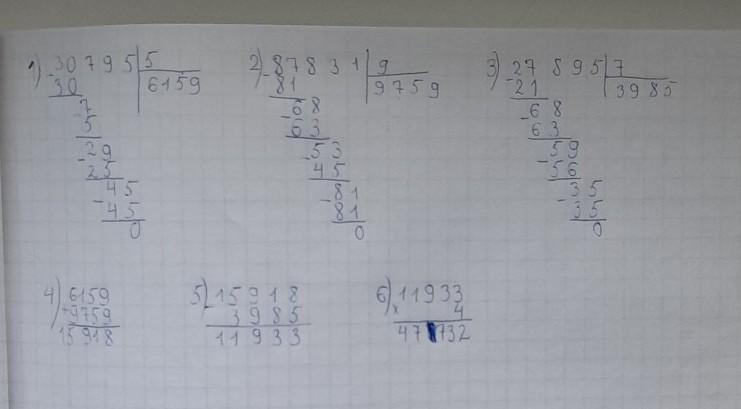 1) -30795 | 5
30 | 6159
-7
5
-29
25
-45
45
0
2) -87831 | 9
81 | 9759
-68
63
-53
45
-81
81
0
3) -27895 | 7
21 | 3985
-68
63
-59
56
-35
35
0
4) 6159
+9759
15918
5) -15918
3985
11933
6) 11933
× 4
47732